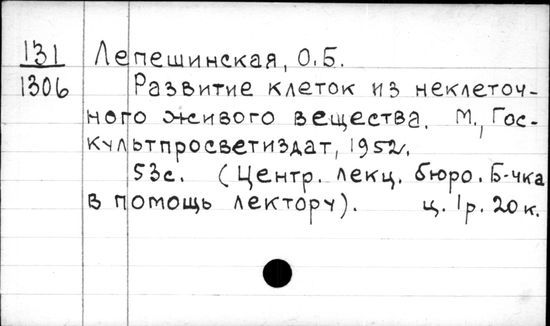 131 Лепешинская, О.Б.
1306 Развитие клеток из неклеточ-
ного живого вещества. М., Гос-
культпросветиздат, 1952.
53с. (Центр. лекц. бюро. Б-чка
в помощь лектору). ц. 1р. 20к.